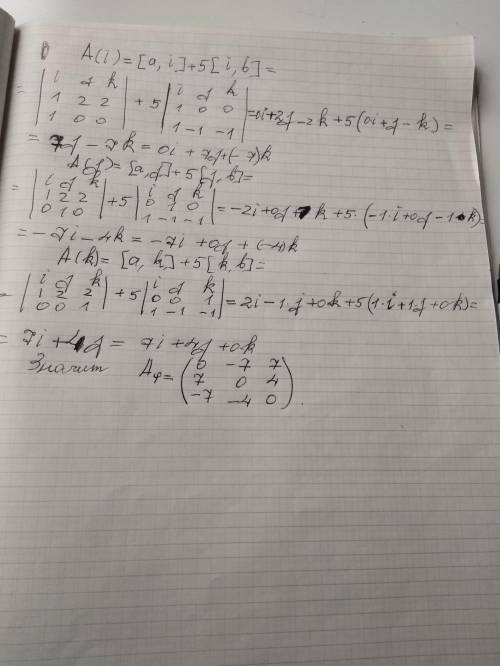 A(i)=[a, i]+5[i, b]=
= | i j k |
| 1 2 2 |
| 1 0 0 | + 5 | i j k |
| 1 0 0 |
| 1 -1 -1 | = 0i+2j-2k+5(0i+j-k)=
= 7j-7k=0i+7j+(-7)k
A(j)=[a,j]+5[j,b]=
= | i j k |
| 1 2 2 |
| 0 1 0 | +5 | i j k |
| 0 1 0 |
| 1 -1 -1 | = -2i+0j+1k+5·(-1·i+0j-1·k)=
= -7i-4k=-7i+0j+(-4)k
A(k)=[a, k]+5[k, b]=
= | i j k |
| 1 2 2 |
| 0 0 1 | +5 | i j k |
| 0 0 1 |
| 1 -1 -1 | = 2i-1·j+0k+5(1·i+1j+0k)=
= 7i+4j= 7i+4j+0k
Значит Aφ= ( 0 -7 7
7 0 4
-7 -4 0 ).